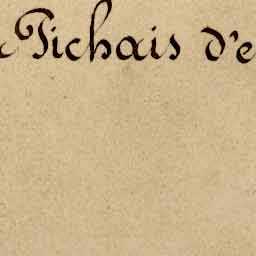 Pichais d'e